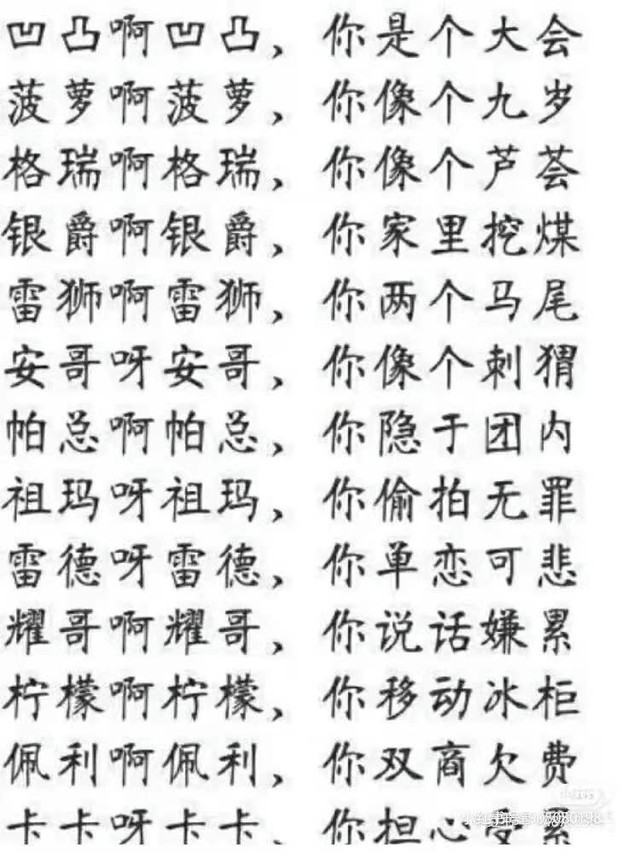 凹凸啊凹凸，你是个大会
菠萝啊菠萝，你像个九岁
格瑞啊格瑞，你像个芦荟
银爵啊银爵，你家里挖煤
雷狮啊雷狮，你两个马尾
安哥呀安哥，你像个刺猬
帕总啊帕总，你隐于团内
祖玛呀祖玛，你偷拍无罪
雷德呀雷德，你单恋可悲
耀哥啊耀哥，你说话嫌累
柠檬啊柠檬，你移动冰柜
佩利啊佩利，你双商欠费
卡卡呀卡卡，你担心受累